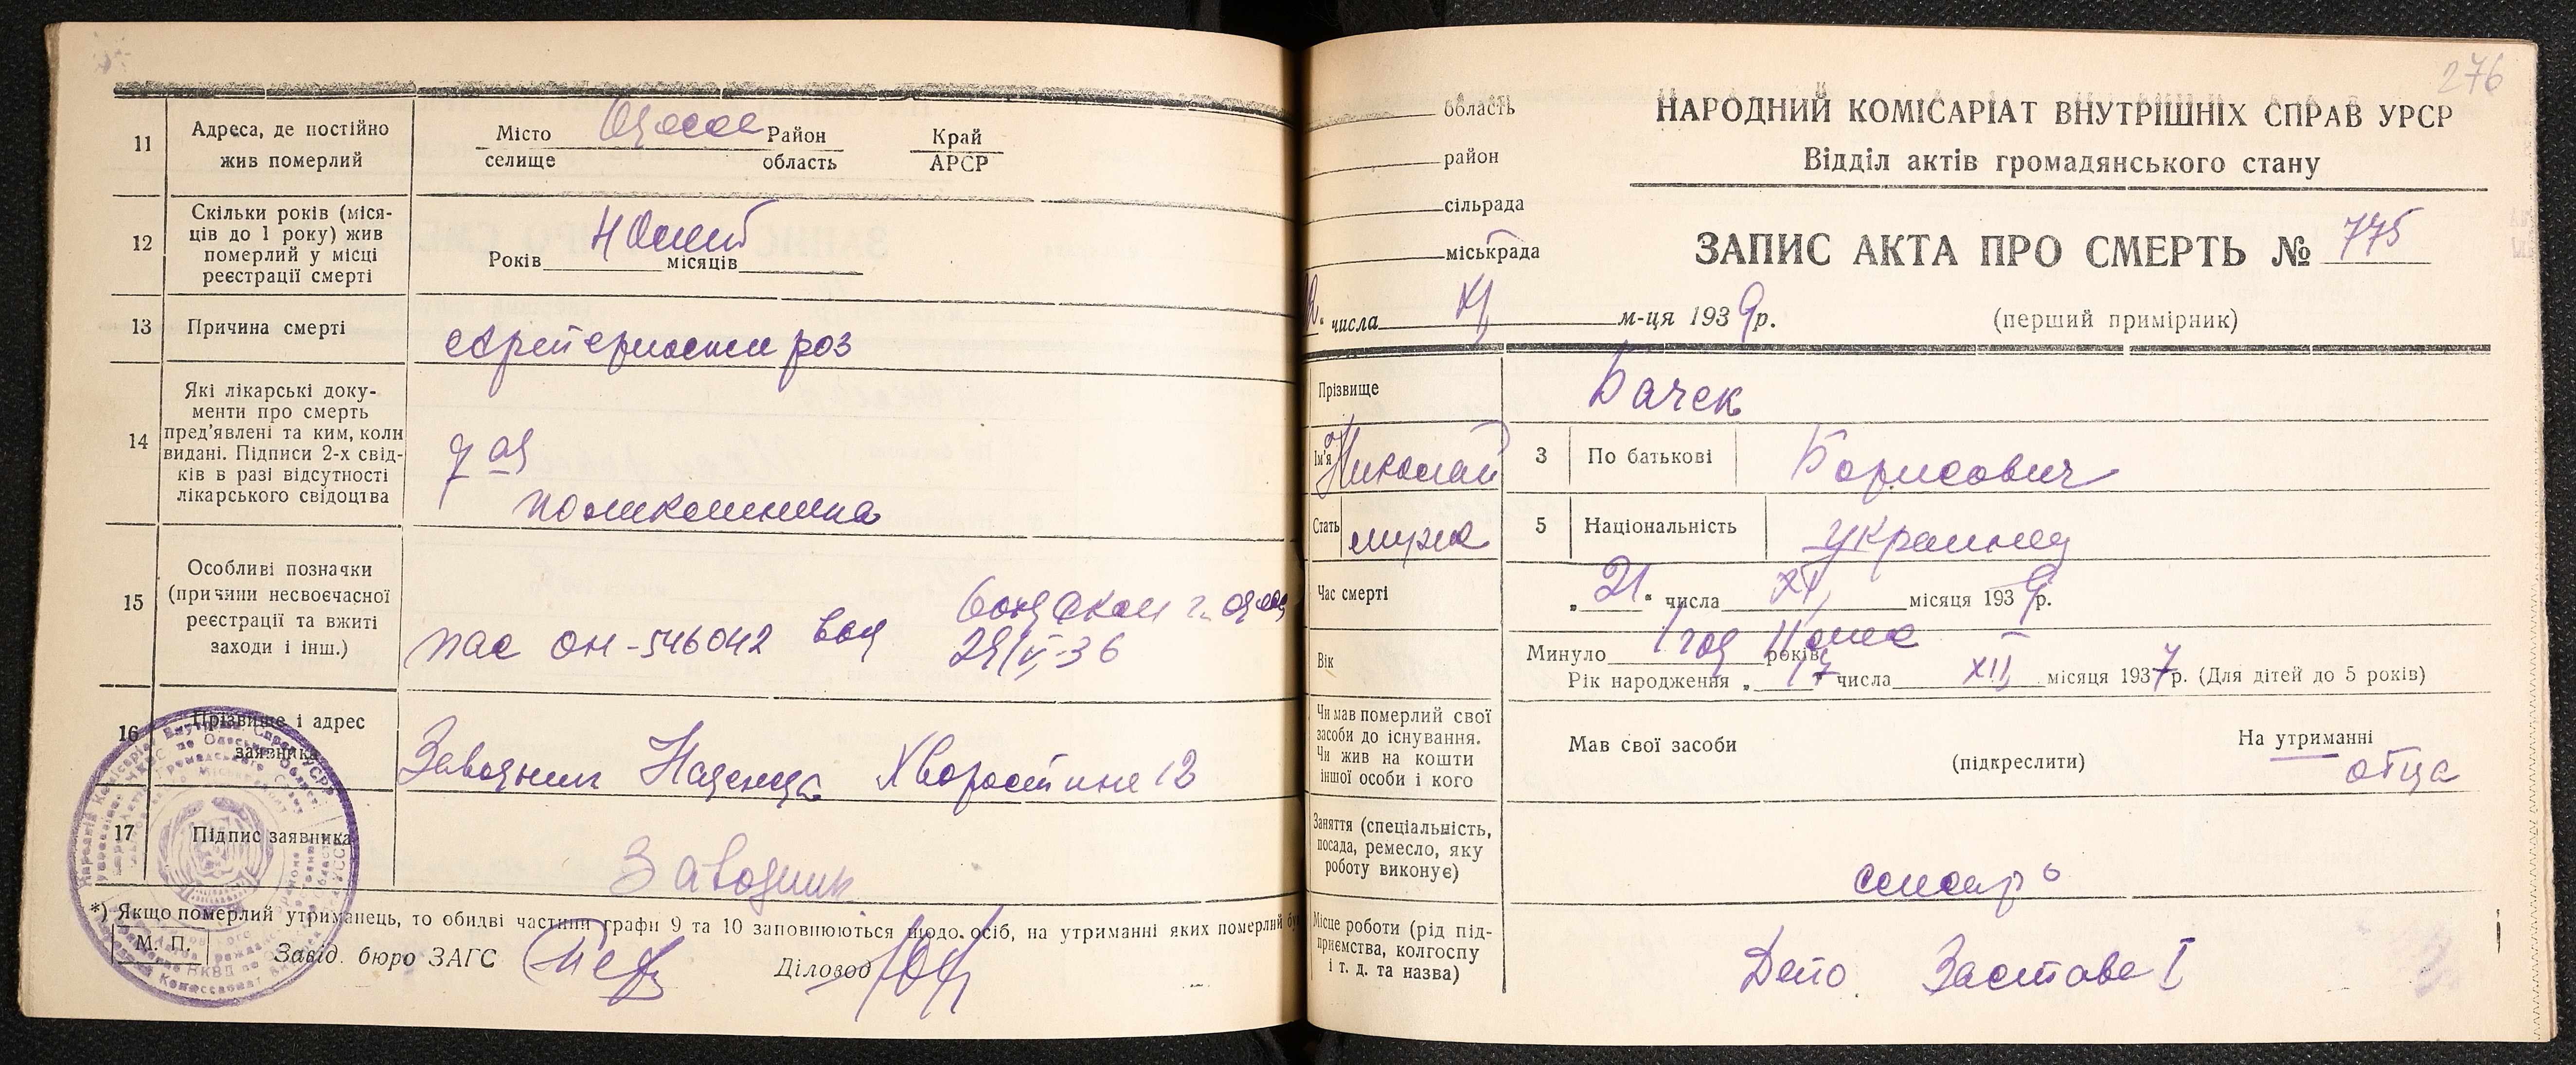 11
Адреса, де постійно
жив померлий
Місто Одесса Район Край
селище область АРСР
12
Скільки років (міся-
ців до 1 року) жив
померлий у місці
реєстрації смерті
Років місяців
13
Причина смерті
14
Які лікарські доку-
менти про смерть
пред'явлені та ким, коли
видані. Підписи 2-х свід-
ків в разі відсутності
лікарського свідоцтва
7 ая
поликлиника
15
Особливі позначки
(причини несвоєчасної
реєстрації та вжиті
заходи і інш.)
пас ОН-546042
16
Прізвище і адрес
заявника
Заводник Надежда Хворостина 12
17
Підпис заявника
Заводник
*) Якщо померлий утриманець, то обидві частини графи 9 та 10 заповнюються щодо осіб, на утриманні яких померлий
М. П.
Завід. бюро ЗАГС
Діловод
276
область
район
сільрада
міськрада
НАРОДНИЙ КОМІСАРІАТ ВНУТРІШНІХ СПРАВ УРСР
Відділ актів громадянського стану
ЗАПИС АКТА ПРО СМЕРТЬ № 775
числа XI м-ця 1939 р.
(перший примірник)
Прізвище
Бачек
Ім'я
Николай
3
По батькові
Борисович
Стать
мужс
5
Національність
украинец
Час смерті
„21“ числа XI місяця 1939 р.
Вік
Минуло 1 год 11 мес років
Рік народження „17“ числа XII місяця 1937 р. (Для дітей до 5 років)
Чи мав померлий свої
засоби до існування.
Чи жив на кошти
іншої особи і кого
Мав свої засоби
(підкреслити)
На утриманні
отца
Заняття (спеціальність,
посада, ремесло, яку
роботу виконує)
слесарь
Місце роботи (рід під-
приємства, колгоспу
і т. д. та назва)
Депо Застава I